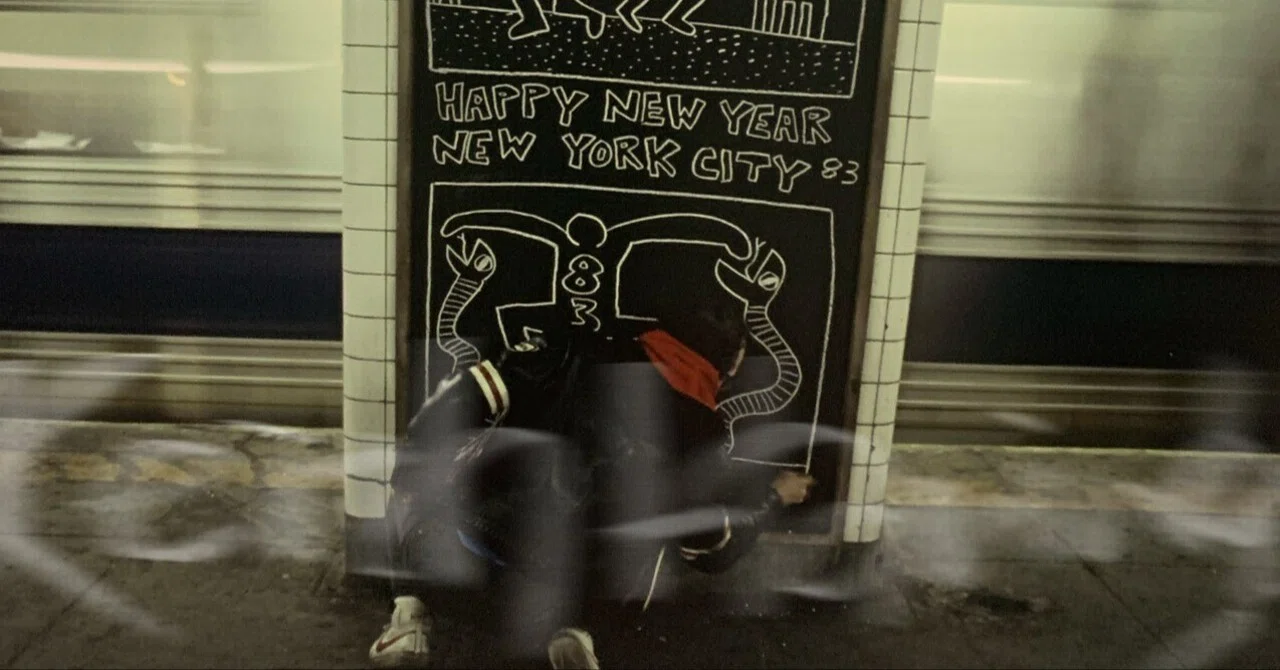 HAPPY NEW YEAR
NEW YORK CITY 83
8
3